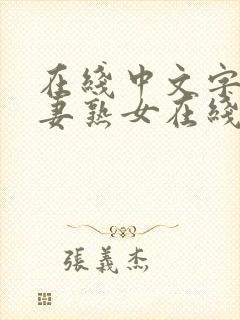 在綫中文字
妻熟女在綫
張義杰